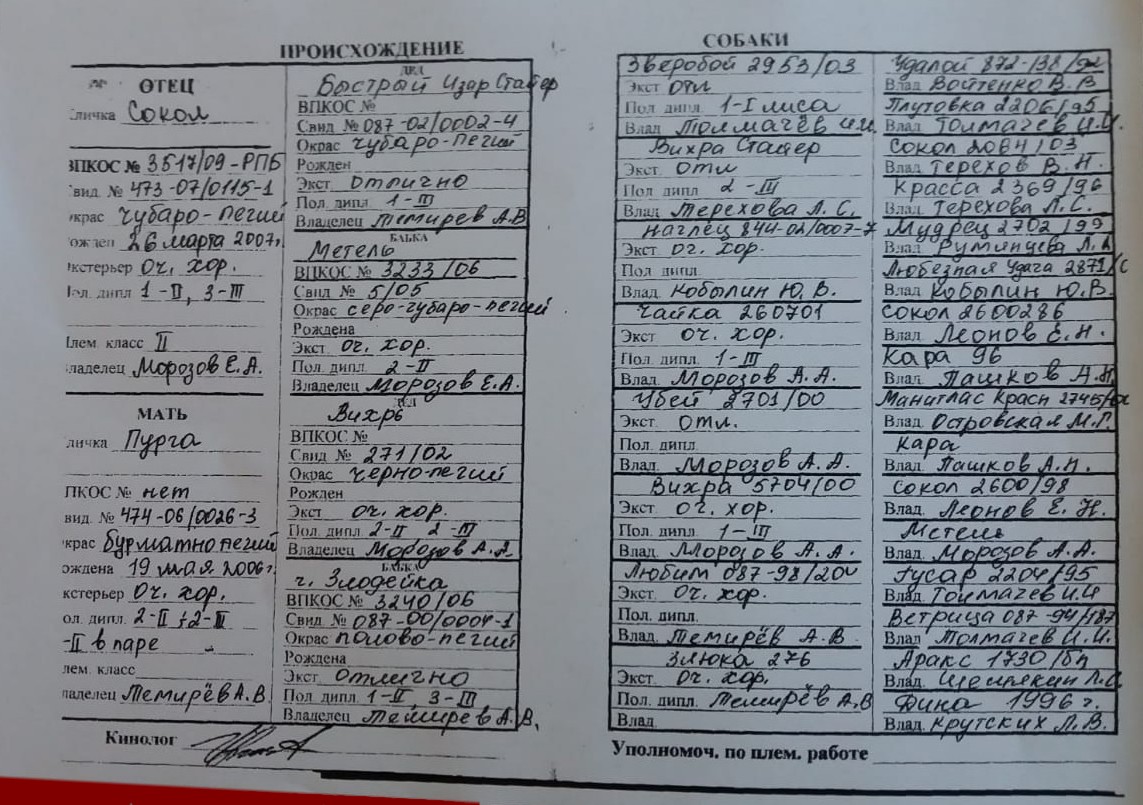 ПРОИСХОЖДЕНИЕ
ОТЕЦ
личка Сокол
ВПКОС № 3517/09-РПБ
вид. № 473-07/0115-1
окрас чубаро-пегий
ожден 26 марта 2007г
экстерьер Оч. хор.
Пол. дипл 1-II, 3-III
Плем. класс II
ладелец Морозов Е.А.
МАТЬ
личка Пурга
ПКОС № нет
вид. № 474-06/0026-3
окрас бурматнопегий
ождена 19 мая 2006г
кстерьер Оч. хор.
ол. дипл. 2-II, 2-III
-II в паре
лем. класс
ладелец Темирёв А.В
Кинолог
ДЕД
Быстрый Изар Стайер
ВПКОС №
Свид № 087-02/0002-4
Окрас чубаро-пегий
Рожден
Экст. Отлично
Пол. дипл 1-III
Владелец Темирев А.В
БАБКА
Метель
ВПКОС № 3233/06
Свид № 5/05
Окрас серо-чубаро-пегий
Рождена
Экст. Оч. хор.
Пол. дипл. 2-II
Владелец Морозов Е.А.
ДЕД
Вихрь
ВПКОС №
Свид № 271/02
Окрас черно-пегий
Рожден
Экст Оч. хор.
Пол. дипл 2-II 2-III
Владелец Морозов А.А
БАБКА
ч. Злодейка
ВПКОС № 3240/06
Свид № 087-00/0004-1
Окрас полово-пегий
Рождена
Экст Отлично
Пол. дипл 1-II, 3-III
Владелец Темирев А.В.
СОБАКИ
Зверобой 2953/03
Экст Отл
Пол дипл. 1-I лиса
Влад Толмачёв И.И.
Вихра Стайер
Экст. Отл
Пол дипл 2-III
Влад Терехова Л.С.
Наглец 844-02/0007-7
Экст. Оч. хор.
Пол дипл.
Влад. Кобылин Ю.В.
Чайка 260701
Экст Оч. хор.
Пол дипл. 1-III
Влад Морозов А.А.
Убей 2701/00
Экст. Отл.
Пол. дипл
Влад. Морозов А.А.
Вихра 5704/00
Экст Оч. хор.
Пол дипл. 1-III
Влад Морозов А.А.
Любим 087-98/204
Экст. Оч. хор.
Пол. дипл.
Влад Темирёв А.В
Злюка 276
Экст. Оч. хор.
Пол. дипл. Темирёв А.В
Влад
Удалой 872-138/92
Влад Войтенко В.В
Плутовка 2206/95
Влад Толмачев И.И.
Сокол 2064/03
Влад Терехов В.Н.
Красса 2369/96
Влад. Терехова Л.С.
Мудрец 2702/99
Влад Румянцева Л.А
Любезная Удача 2871/С
Влад Кобылин Ю.В.
Сокол 2600286
Влад Леонов Е.Н.
Кара 96
Влад. Пашков А.Н.
Влад Островская М.Г.
Кара
Влад Пашков А.Н.
Сокол 2600/98
Влад. Леонов Е.Н.
Метель
Влад Морозов А.А.
Гусар 2204/95
Влад. Толмачев И.И
Ветрица 087-94/187
Влад Толмачев И.И.
Аракс 1730/бп
Влад
Дина 1996г.
Влад. Крутских Л.В.
Уполномоч. по плем. работе